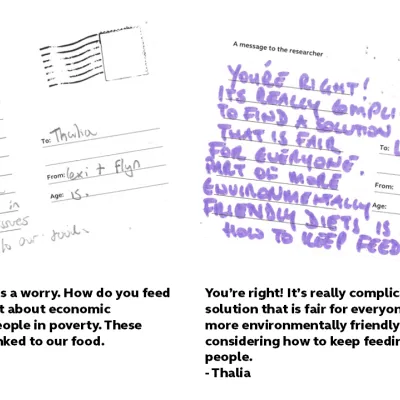 To: Thalia
From: Lexi + Flyn
Age: 15.
in
issues
to our food.
A message to the researcher
YOU'RE RIGHT!
IT'S REALLY COMPLI
TO FIND A SOLUTION
THAT IS FAIR
FOR EVERYONE.
PART OF MORE
ENVIRONMENTALLY
FRIENDLY DIETS IS
HOW TO KEEP FEED
To: L
From:
Age:
s a worry. How do you feed
t about economic
eople in poverty. These
nked to our food.
You're right! It's really complic
solution that is fair for everyon
more environmentally friendly
considering how to keep feedin
people.
- Thalia